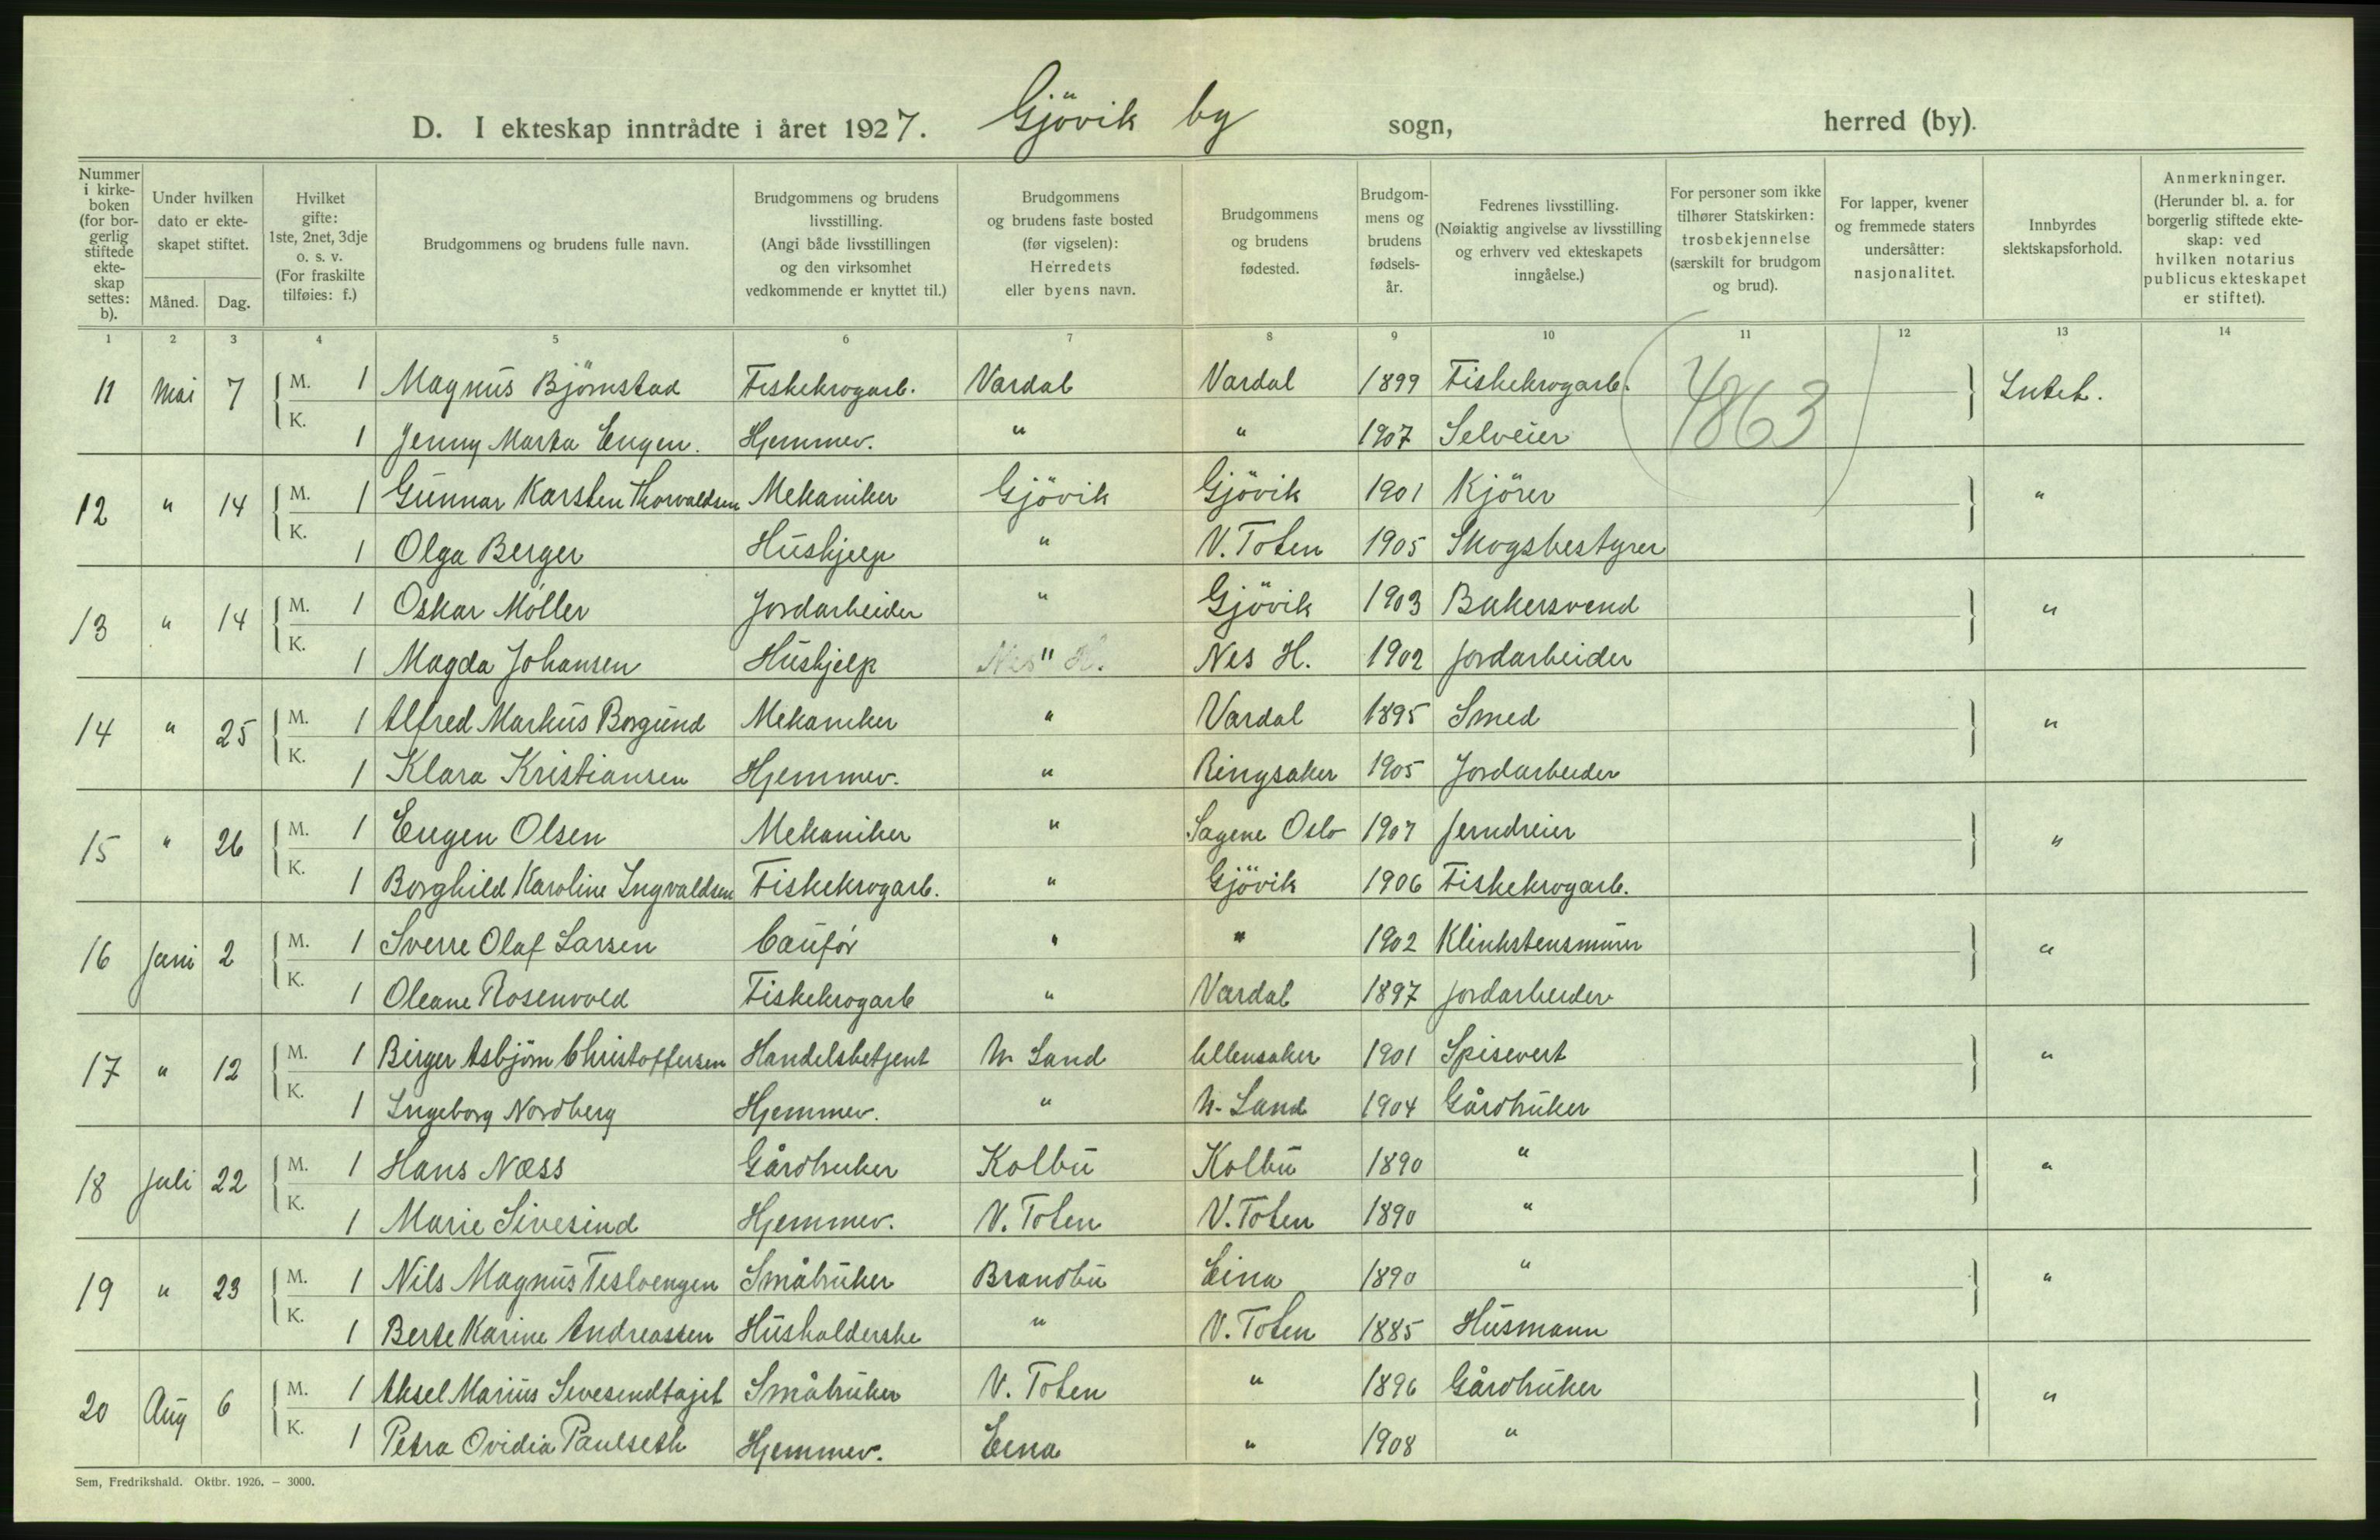 D. I ekteskap inntrådte i året 1927. Gjövik by sogn, herred (by).
Nummer i kirkeboken (for borgerlig stiftede ekteskap settes: b).
Under hvilken dato er ekteskapet stiftet.
Måned. Dag.
Hvilket gifte: 1ste, 2net, 3dje o. s. v. (For fraskilte tilføies: f.)
Brudgommens og brudens fulle navn.
Brudgommens og brudens livsstilling. (Angi både livsstillingen og den virksomhet vedkommende er knyttet til.)
Brudgommens og brudens faste bosted (før vigselen): Herredets eller byens navn.
Brudgommens og brudens fødested.
Brudgommens og brudens fødselsår.
Fedrenes livsstilling. (Nøiaktig angivelse av livsstilling og erhverv ved ekteskapets inngåelse.)
For personer som ikke tilhører Statskirken: trosbekjennelse (særskilt for brudgom og brud).
For lapper, kvener og fremmede staters undersåtter: nasjonalitet.
Innbyrdes slektskapsforhold.
Anmerkninger. (Herunder bl. a. for borgerlig stiftede ekteskap: ved hvilken notarius publicus ekteskapet er stiftet).
1 2 3 4 5 6 7 8 9 10 11 12 13 14
11 Mai 7 M. 1 Magnus Björnstad Fiskekrogarb. Vardal Vardal 1899 Fiskekrogarb. (4863) Intet.
K. 1 Jenny Marta Engen. Hjemmev. " " 1907 Selveier
12 " 14 M. 1 Gunnar Karsten Thorvaldsen Mekaniker Gjövik Gjövik 1901 Kjörer "
K. 1 Olga Berger Hushjelp " V. Toten 1905 Skogsbestyrer
13 " 14 M. 1 Oskar Möller Jordarbeider " Gjövik 1903 Bakersvend "
K. 1 Magda Johansen Hushjelp Nes " H. Nes H. 1902 Jordarbeider
14 " 25 M. 1 Alfred Markus Borgund Mekaniker " Vardal 1895 Smed "
K. 1 Klara Kristiansen Hjemmev. " Ringsaker 1905 Jordarbeider
15 " 26 M. 1 Eugen Olsen Mekaniker " Sagene Oslo 1907 Jerndreier "
K. 1 Borghild Karoline Ingvaldsen Fiskekrogarb. " Gjövik 1906 Fiskekrogarb.
16 Juni 2 M. 1 Sverre Olaf Larsen Caufór " " 1902 Klinkstensmurer "
K. 1 Oleane Rosenvold Fiskekrogarb " Vardal 1897 Jordarbeider
17 " 12 M. 1 Birger Asbjörn Christoffersen Handelsbetjent N. Land Ullensaker 1901 Spisevert "
K. 1 Ingeborg Nordberg Hjemmev. " N. Land 1904 Gårdbruker
18 Juli 22 M. 1 Hans Næss Gårdbruker Kolbu Kolbu 1890 " "
K. 1 Marie Sivesind Hjemmev. V. Toten V. Toten 1890 "
19 " 23 M. 1 Nils Magnus Tesloengen Småbruker Brandbu Eina 1890 " "
K. 1 Berte Karine Andreassen Husholderske " V. Toten 1885 Husmann
20 Aug 6 M. 1 Aksel Marius Sivesindtajet Småbruker V. Toten " 1896 Gårdbruker "
K. 1 Petra Ovidia Paulseth Hjemmev. Eina " 1908 "
Sem, Fredrikshald. Oktbr. 1926. – 3000.